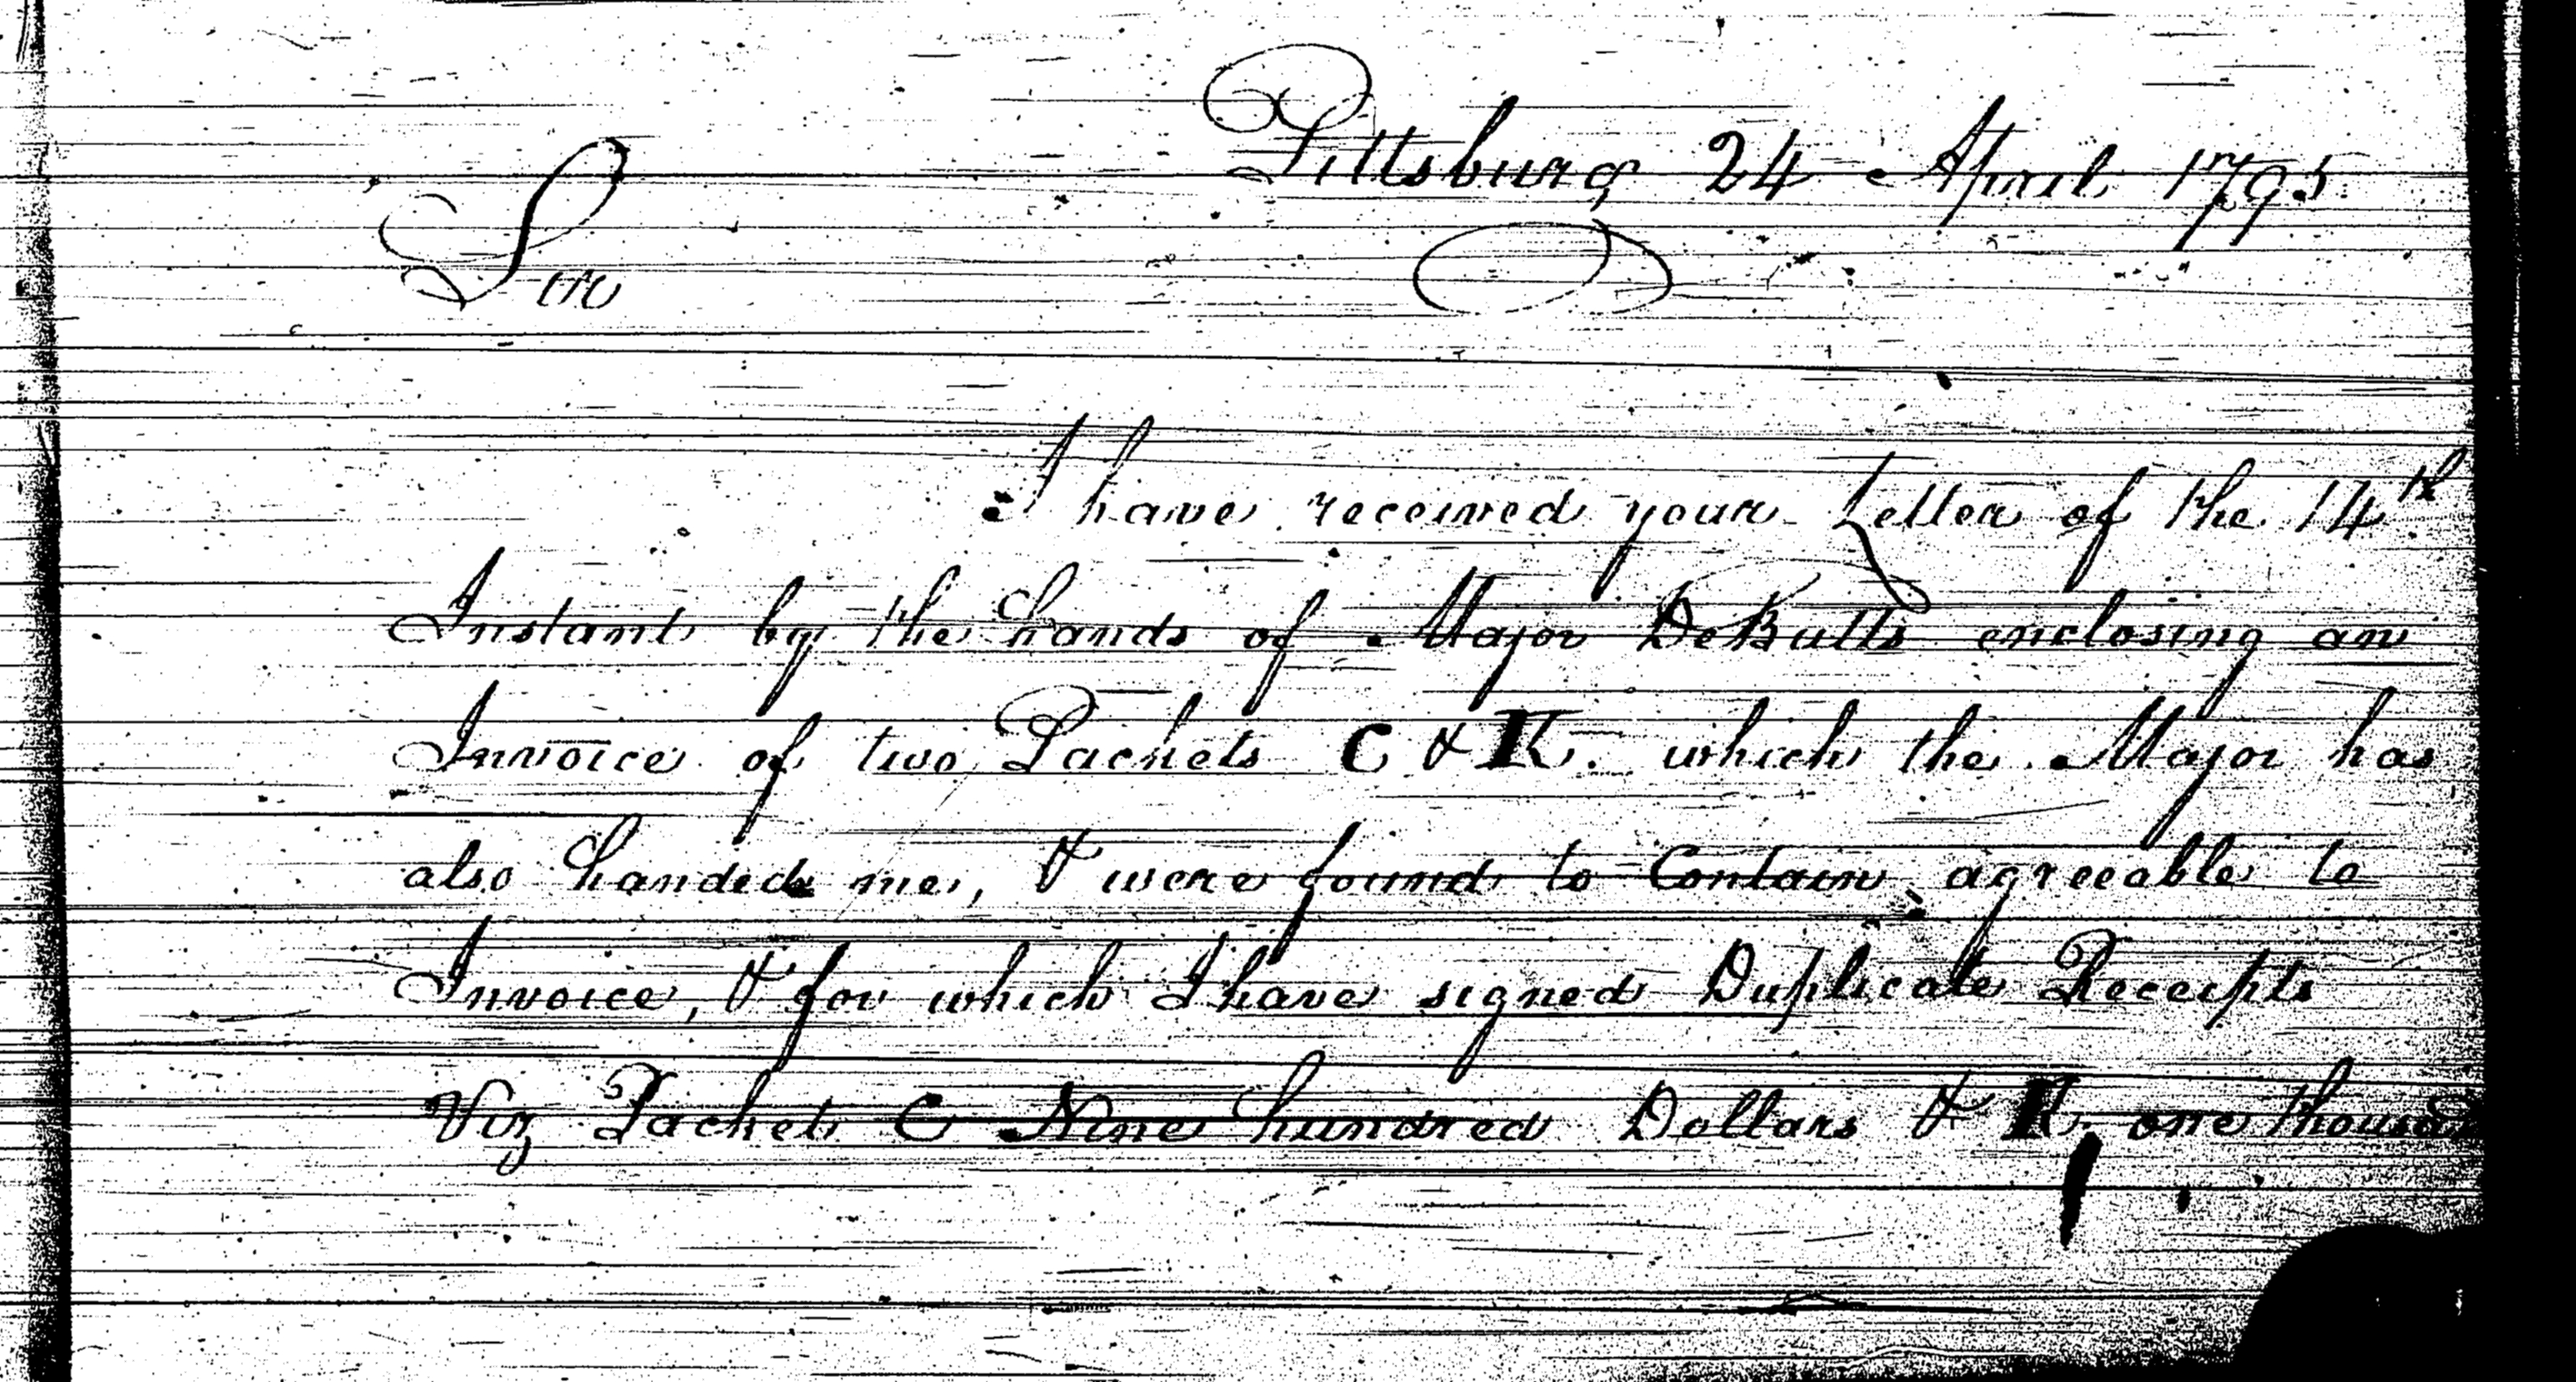 Pittsburg 24 April 1795
Sir
I have received your Letter of the 14th
Instant by the hands of Major DeButts enclosing an
Invoice of two Packets C & K. which the Major has
also handed me, & were found to Contain agreeable to
Invoice, & for which I have signed Duplicate Receipts
Viz Packet C Nine hundred Dollars & K. one thousand